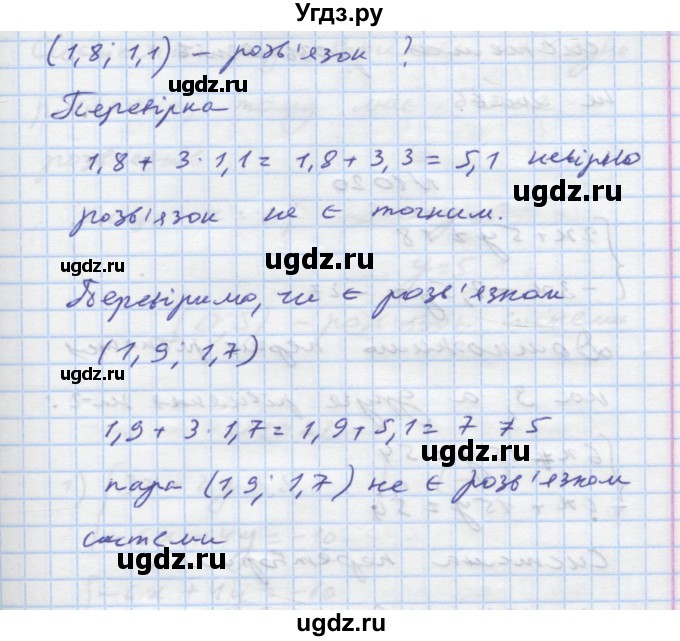 Угдз.ру
(1,8; 1,1) – розв'язок ?
ugdz.ru
Перевірка
ugdz.ru
1,8 + 3·1,1 = 1,8 + 3,3 = 5,1 невірно
ugdz.ru
розв'язок не є точним.
ugdz.ru
ugdz.ru
Перевіримо, чи є розв'язком
ugdz.ru
(1,9; 1,7)
ugdz.ru
1,9 + 3·1,7 = 1,9 + 5,1 = 7 ≠ 5
ugdz.ru
пара (1,9; 1,7) не є розв'язком
ugdz.ru
системи
ugdz.ru
ugdz.ru